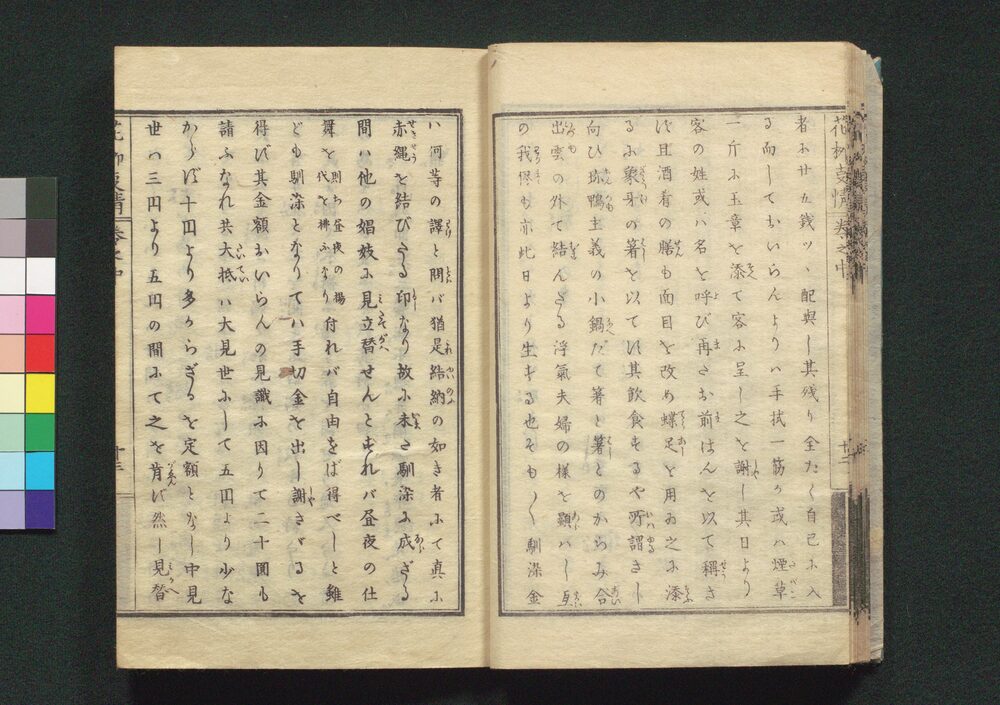 者ふ廿五銭ツヽ配与し其残り全たく自己ふ入
る而しておいらんよりハ手拭一筋か或ハ煙草
一斤ふ玉章を添て客ふ呈し之を謝し其日より
客の姓或ハ名を呼び再さお前はんを以て称さ
ず且酒肴の膳も面目を改め蝶足を用ゐ之ふ添
るふ象牙の箸を以てす其飲食するや所謂さし
向ひ珎鴨主義の小鍋だて箸と箸とのからみ合
出雲の外で結んざる浮氣夫婦の様を顕ハし互
の我侭も亦此日より生ずる也そも〳〵馴染金
花柳事情 巻之中 十二
ハ何等の譯と問バ猶是結納の如き者ふて真ふ
赤縄を結びざる印なり故ふ未さ馴染ふ成ざる
間ハ他の娼妓ふ見立替せんとすれバ昼夜の仕
舞を 則ち昼夜の揚代を拂ふなり 付れバ自由をば得べしと雖
ども馴染となりてハ手切金を出し謝さゞるを
得ず其金額おいらんの見識ふ因りて二十圓も
請ふなれ共大抵ハ大見世ふして五円より少な
からず十円より多からざるを定額となし中見
世ハ三円より五円の間ふて之を肯ず然し見替
花柳事情 巻之中 十三